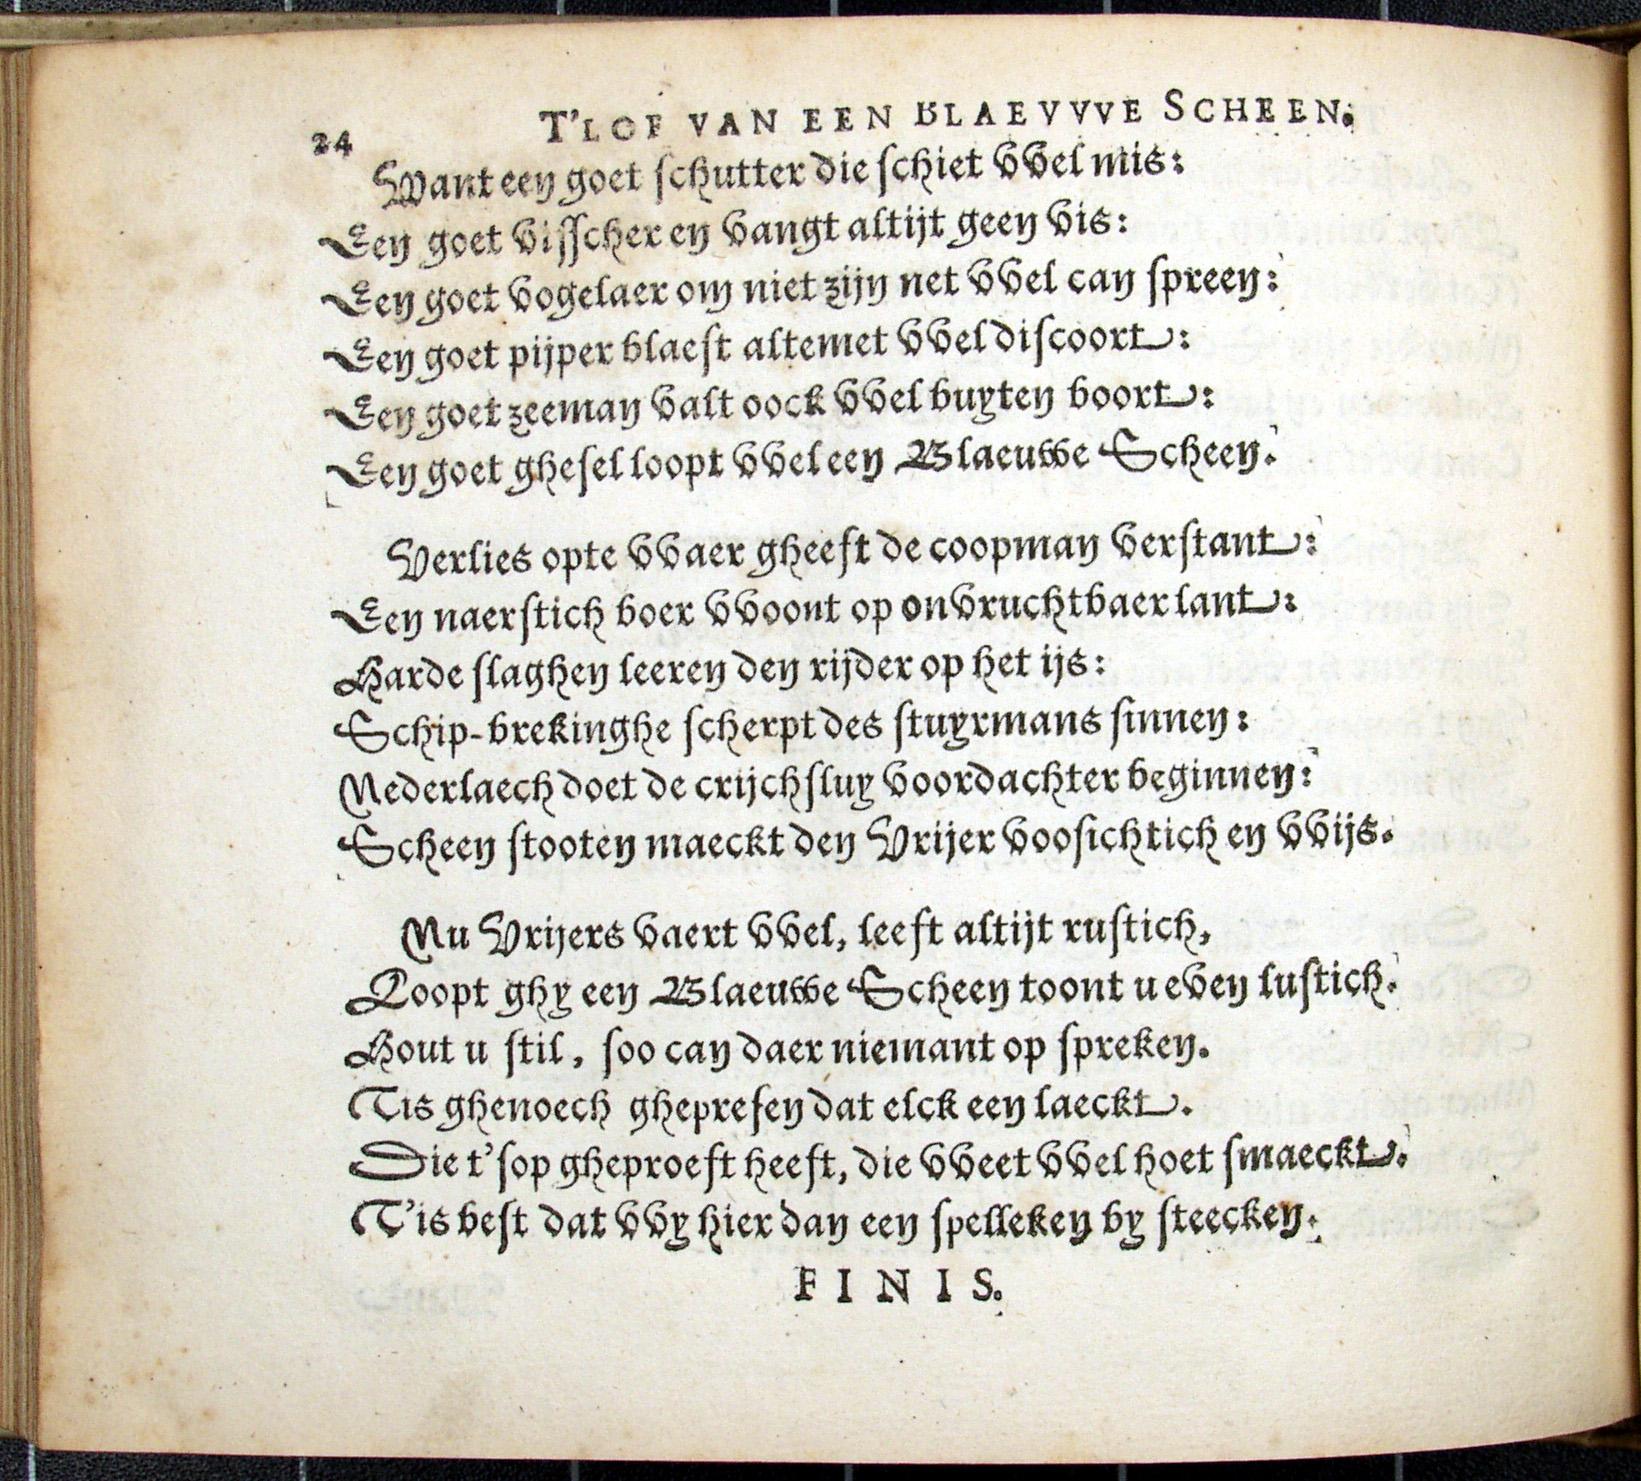 24 T'LOF VAN EEN BLAEVVVE SCHEEN.
Want een goet schutter die schiet vvel mis:
Een goet visscher en vangt altijt geen vis:
Een goet vogelaer om niet zijn net vvel can spreen:
Een goet pijper blaest altemet vvel discoort:
Een goet zeeman valt oock vvel buyten boort:
Een goet ghesel loopt vvel een Blaeuwe Scheen.
Verlies opte vvaer gheeft de coopman verstant:
Een naerstich boer vvoont op onvruchtbaer lant:
Harde slaghen leeren den rijder op het ijs:
Schip-brekinghe scherpt des stuyrmans sinnen:
Nederlaech doet de crijchsluy voordachter beginnen:
Scheen stooten maeckt den Vrijer voosichtich en vvijs.
Nu Vrijers vaert vvel, leeft altijt rustich,
Loopt ghy een Blaeuwe Scheen toont u even lustich.
Hout u stil, soo can daer niemant op spreken.
Tis ghenoech ghepresen dat elck een laeckt.
Die t'sop gheproeft heeft, die vveet vvel hoet smaeckt.
T'is best dat vvy hier dan een spelleken by steecken.
FINIS.